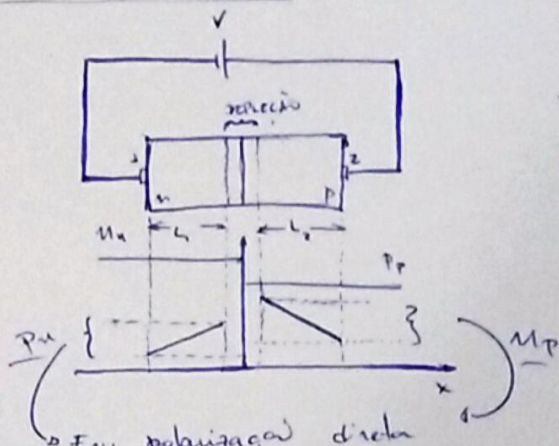 V
DEPLEÇÃO
1 2
n p
L₁ L₂
nₙ
pₚ
pₙ { } nₚ
x
Em polarização direta